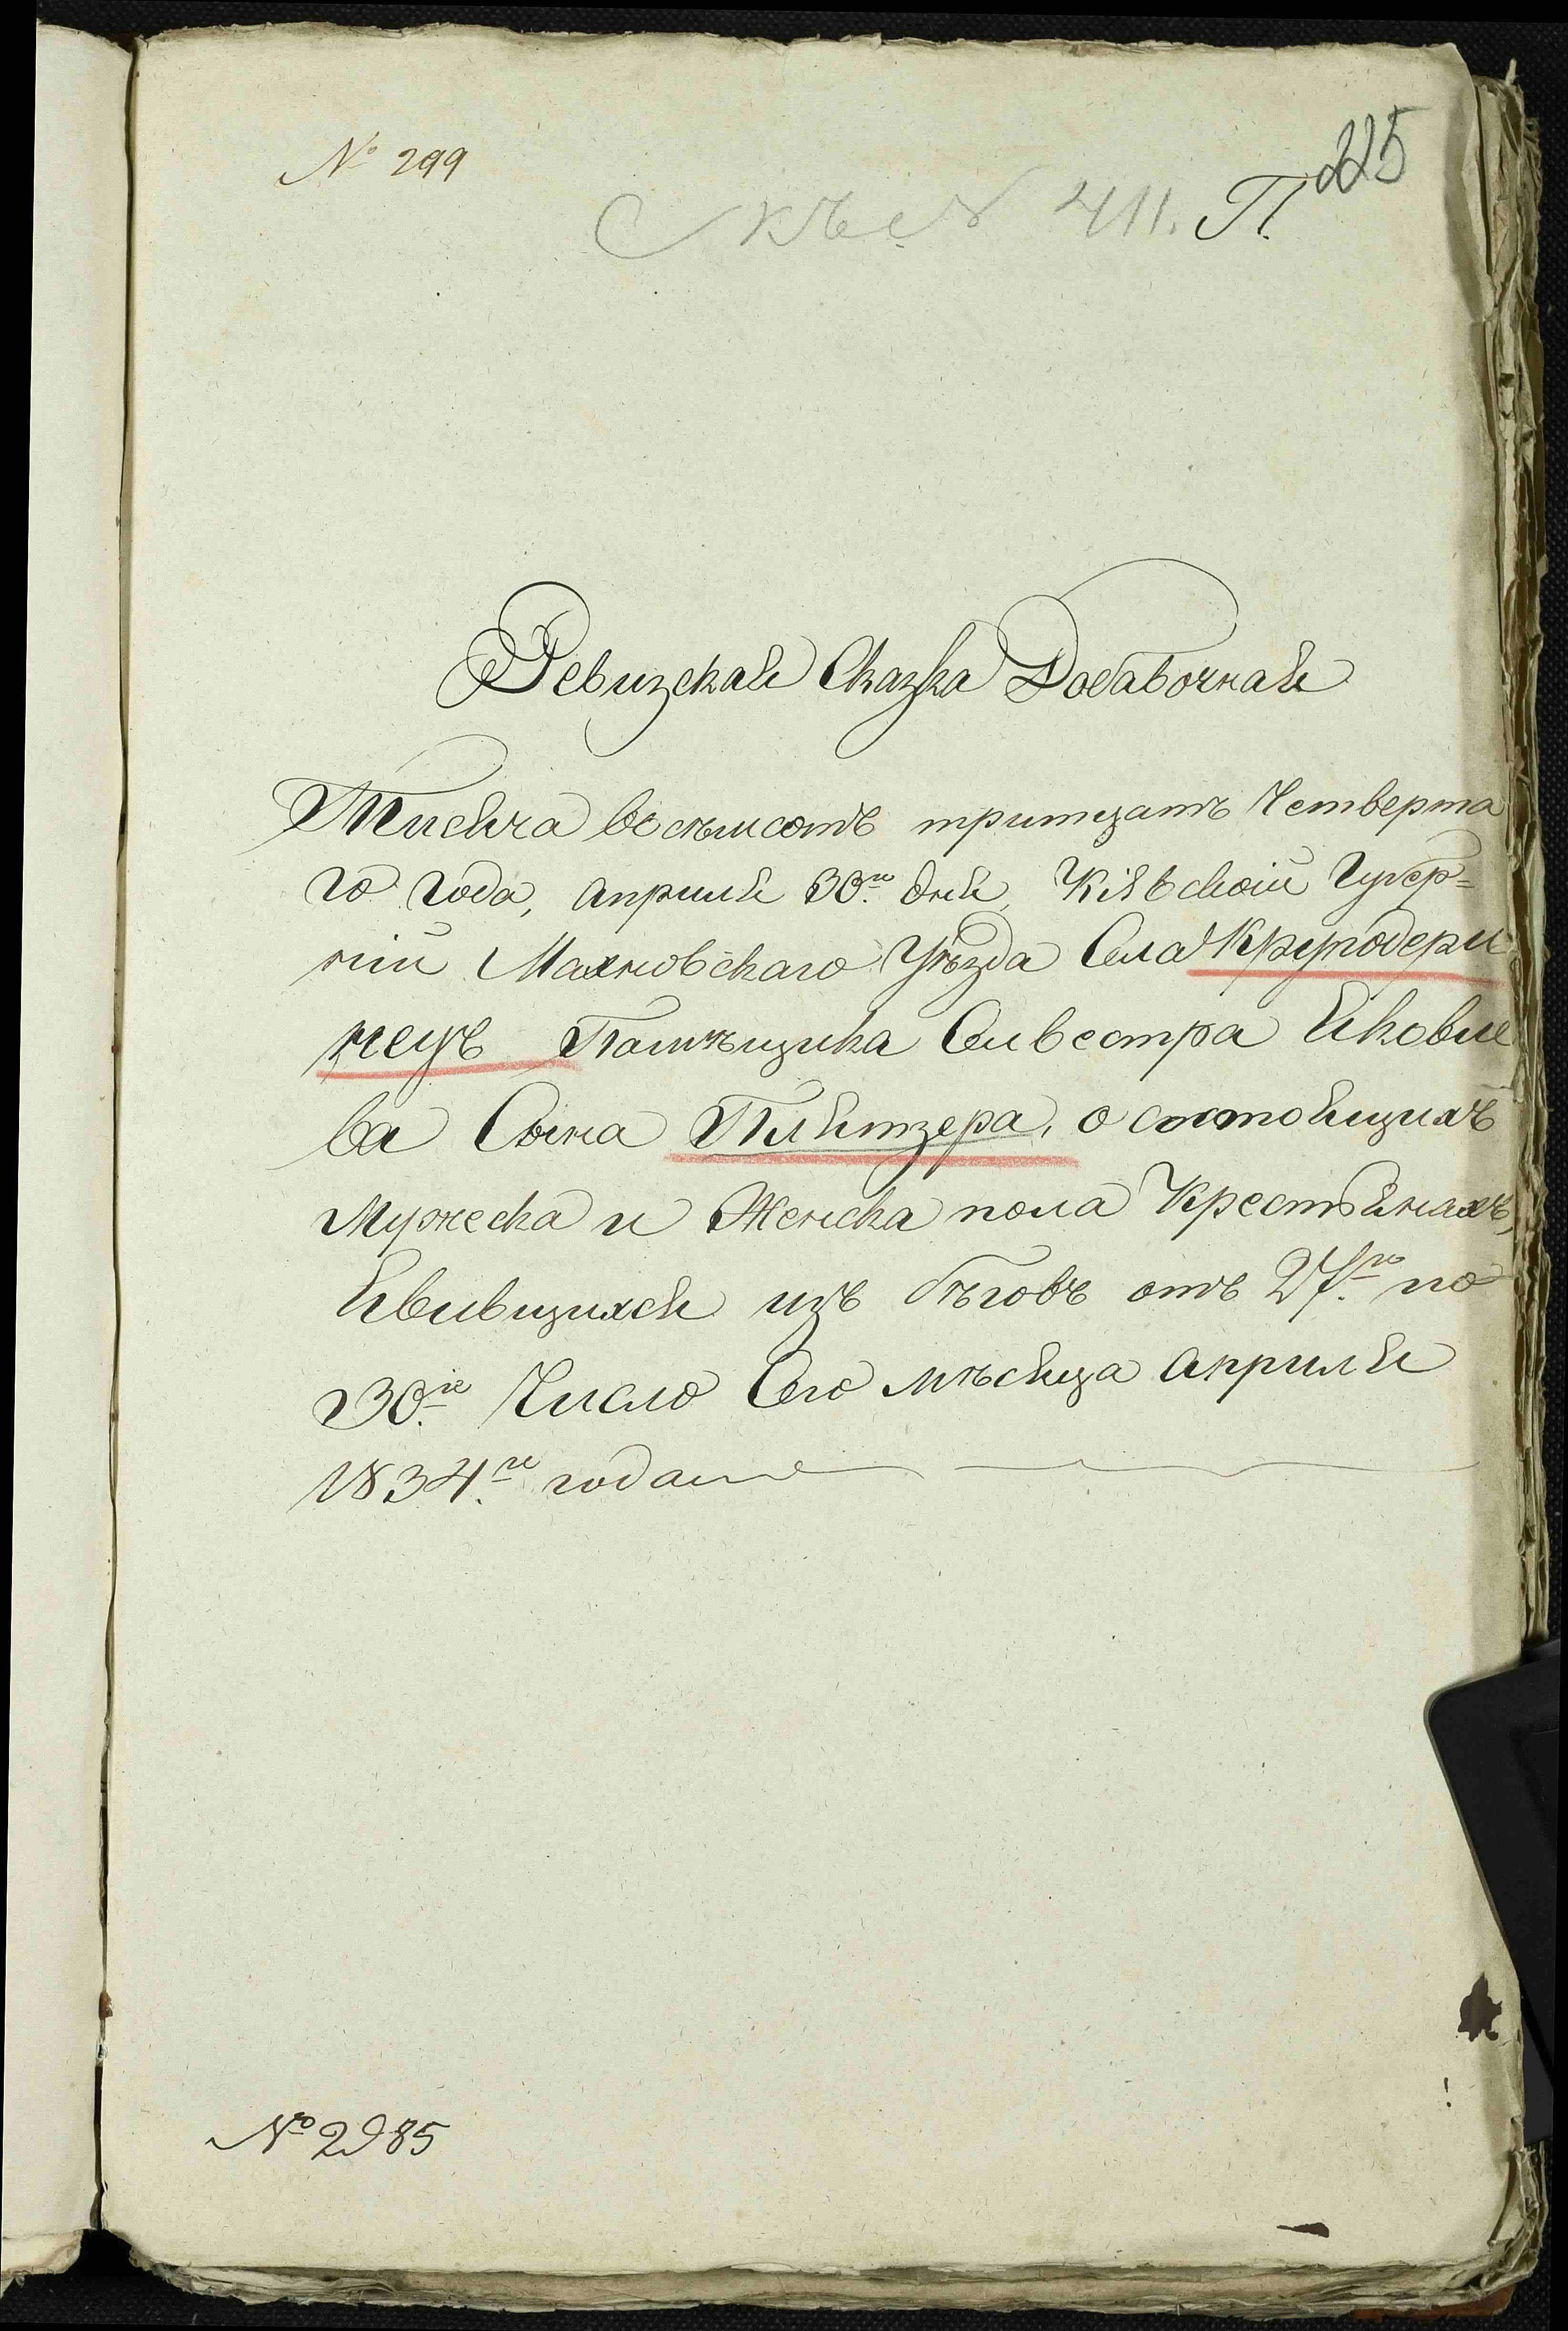 № 299
225
къ № 411. П.
Ревизская Сказка Добавочная
Тисяча восѣмсотъ тритцать Четверта
го Года, Априля 30го дня, Кіевской Губер=
ніи Махновскаго Уѣзда Села Крутодери
нецъ Помѣщика Сивестра Яковле
ва Сына Пляттера, о состоящихъ
Мужеска и Женска пола Крестьянахъ,
Явившихся изъ бѣговъ отъ 27го по
30го Число Сего мѣсяца Априля
1834го года
№ 2985